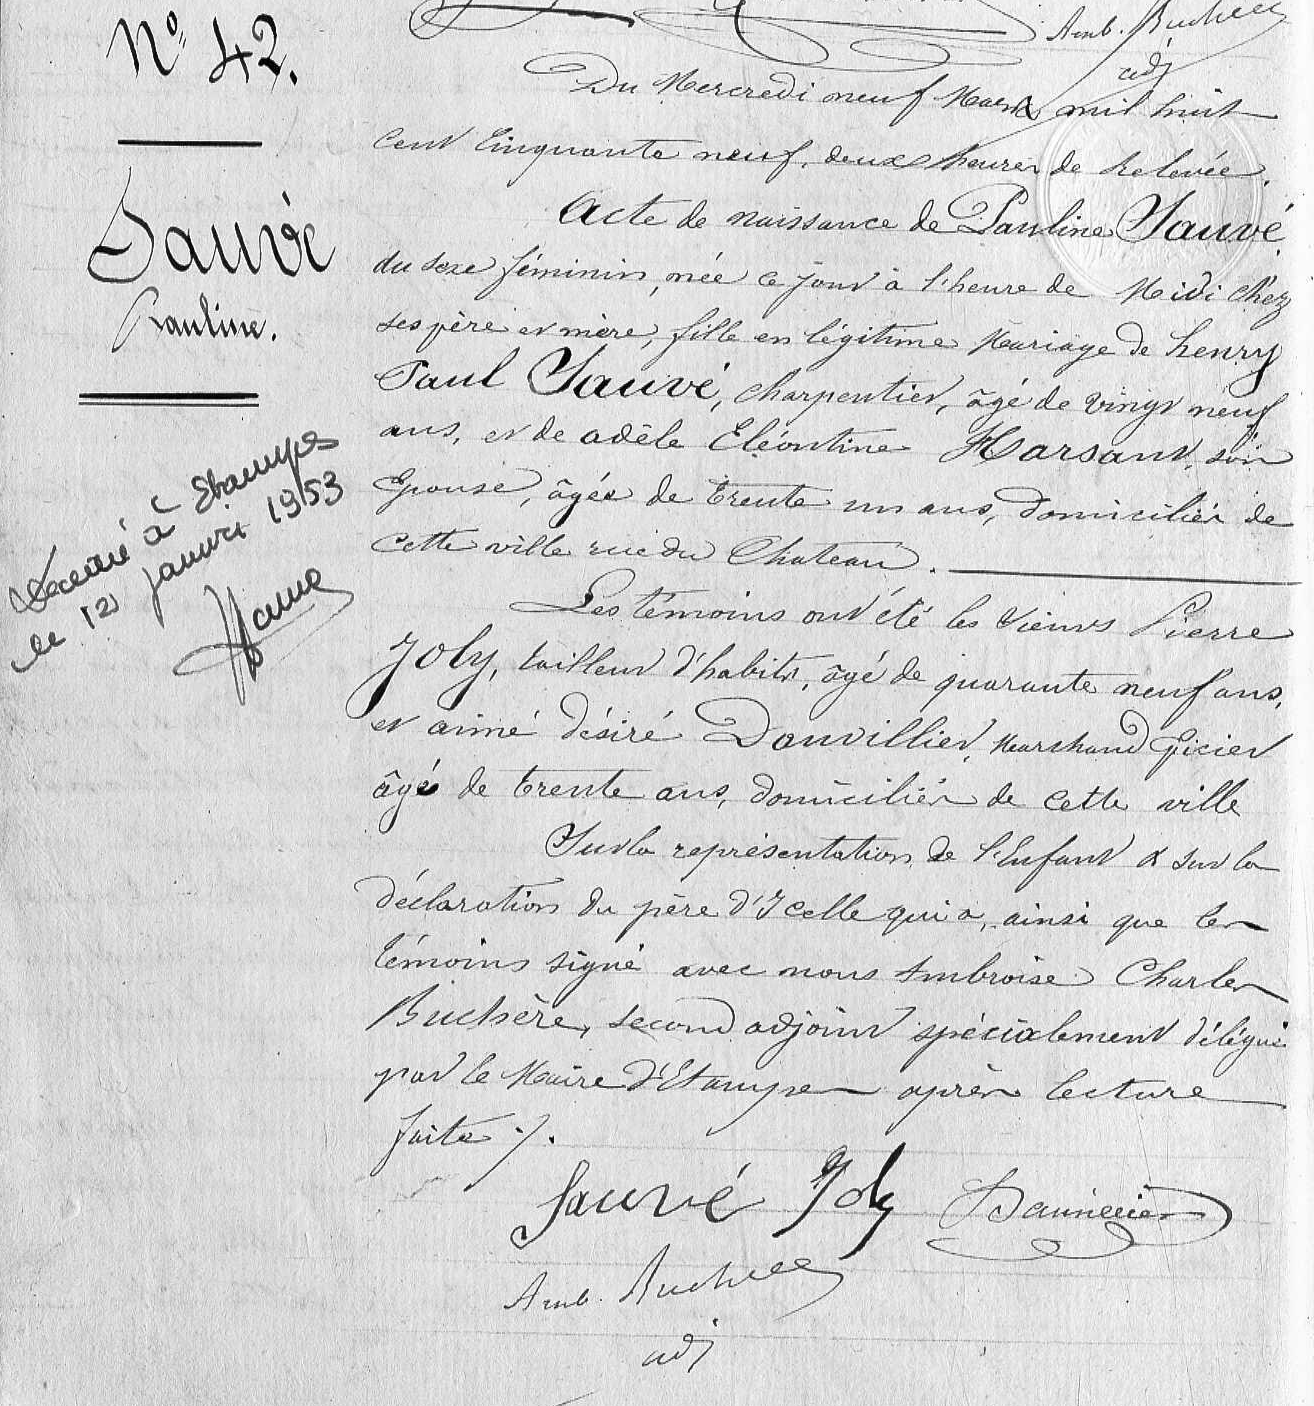 Amb. Buchère
adj
N° 42.
Sauvé
Pauline.
Décédé à Etampes
le 12 janvier 1953
Du Mercredi neuf Mars mil huit
cent Cinquante neuf, deux heures de Relevée.
Acte de naissance de Pauline Sauvé
du sexe féminin, née ce jour à l'heure de Midi chez
ses père et mère, fille en légitime Mariage de henry
Paul Sauvé, charpentier, âgé de vingt neuf
ans, et de adèle Eléontine Harsant, son
Epouse, âgée de trente un ans, domiciliés de
cette ville rue du Chateau.
Les témoins ont été les Sieurs Pierre
Joly, tailleur d'habits, âgé de quarante neuf ans,
et aimé désiré Dauvillier, Marchand Epicier
âgé de trente ans, domiciliés de cette ville
Sur la représentation de l'Enfant & sur la
déclaration du père d'Icelle qui a, ainsi que les
témoins signé avec nous Ambroise Charles
Buchère, second adjoint spécialement délégué
par le Maire d'Etampes après lecture
faite ./.
Sauvé Joly Dauvillier
Amb. Buchère
adj